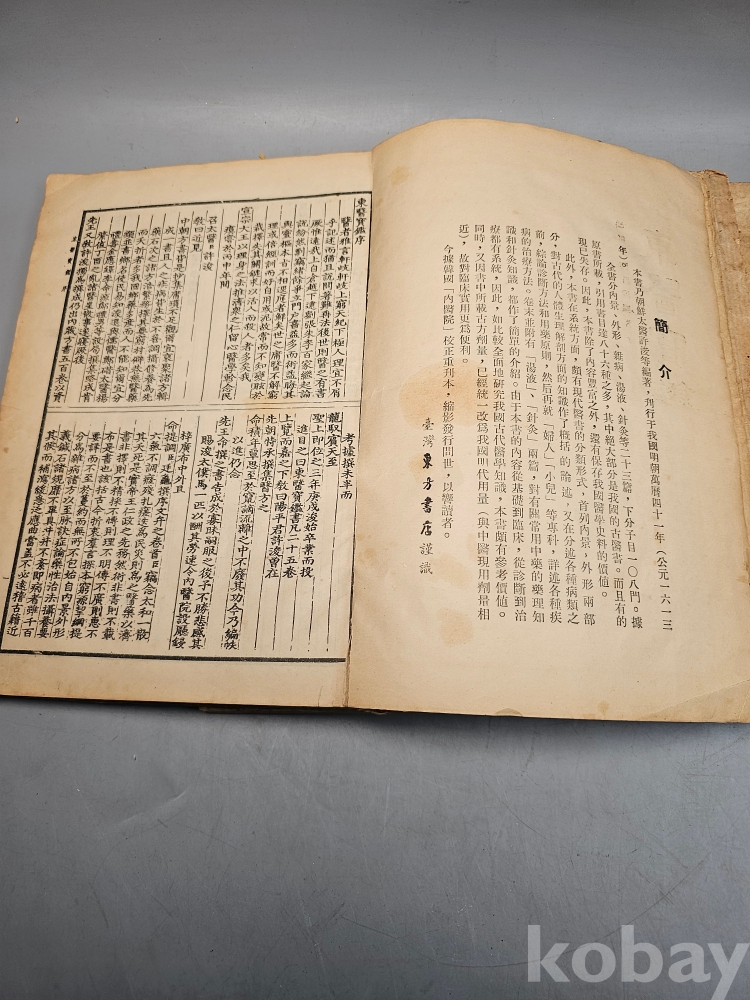 簡介
本書乃朝鮮太醫許浚等編著，刋行于我國明朝萬曆四十一年（公元一六一三
年）。
全書分內景、外形、雜病、湯液、針灸等二十三篇，下分子目一〇八門。據
原書所載，引用書目達八十六種之多，其中絕大部分是我國的古醫書。而且有的
現已失存。因此，本書除了內容豐富之外，還有保存我國醫學史料的價值。
此外，本書在系統方面，頗有現代醫書的分類形式，首列內景，外形兩部
分，對古代的人體生理解剖方面的知識作了概括的論述，又在分述各種病類之
前，綜論診斷方法和用藥原則，然后再就「婦人」「小兒」等專科，詳述各種疾
病的治療方法。卷末並附有「湯液」、「針灸」兩篇，對有關常用中藥的藥理知
識和針灸知識，都作了簡單的介紹。由于本書的內容從基礎到臨床，從診斷到治
療都有系統，因此，如比較全面地研究我國古代醫學知識，本書頗有參考價值。
同時，又因書中所載圧方劑量，已經統一改為我國明代用量（與中醫現用劑量相
近），故對臨床實用更為便利。
今據韓國「內醫院」校正重升本，縮影發行問世，以饗讀者。
臺灣東方書店謹識
東醫寶鑑序
醫者雅言軒岐軒岐上窮天紀下極人理宜不屑
乎記述而猶且說問著難再法後世則醫之有書
厥惟遠哉上自倉越下逮劉張朱李百家繼起論
說紛然剽竊緖餘爭立門戶書益多而術益晦其
與靈樞本旨不相逕庭者鮮矣世之庸醫不解窮
理或倍經訓而好自用或泥故常而不知變眩於
裁擇失其關鍵求以活人而殺人者多矣我
宣宗大王以理身之法推濟衆之仁留心醫學軫念民
瘼嘗於丙申年間
召太醫臣許浚
敎曰近見
中朝方書皆是抄集庸瑣不足觀爾宜裒聚諸方輯
成一書且人之疾病皆生於不善調攝修養為先
藥石次之諸方浩繁務擇其要窮村僻巷無醫藥
而夭折者多我國鄕藥多產而人不能知爾宜分
類並書鄕名使民易知浚退與儒醫鄭碏太醫楊
禮壽金應鐸李命源鄭禮男等設局撰集略成肯
綮値丁酉之亂諸醫星散事遂寢厥後
先王又敎許浚獨為撰成仍出內藏方書五百卷以資
考據撰未半而
龍馭賓天至
聖上即位之三年庚戌浚始卒業而投
進目之曰東醫寶鑑書凡二十五卷
上覽而嘉之下敎曰陽平君許浚曾在
先朝特承撰集醫方之
命積年覃思至於竄謫流離之中不廢其功今乃編帙
以進仍念
先王命撰之書告成於寡昧嗣服之後予不勝悲感其
賜浚太僕馬一匹以酬其勞速令內醫院設廳鋟
梓廣布中外且
命提調臣廷龜撰序文弁之卷首臣竊念太和一散
六氣不調癃殘札瘥迭為民災則為之醫藥以濟
其夭死是實帝王仁政之先務然術非書則不載
書非擇則不精採不博則理不明傳不廣則惠不
布是書也該括古今折衷羣言探本窮源挈綱提
要詳而不至於蔓約而無所不包始自內景外形
分為雜病諸方以至脉訣症論藥性治法攝養要
義鍼石諸規靡不畢具井井不紊即病者雖千百
其候而補瀉緩急泛應曲當蓋不必遠稽古籍近
kobay